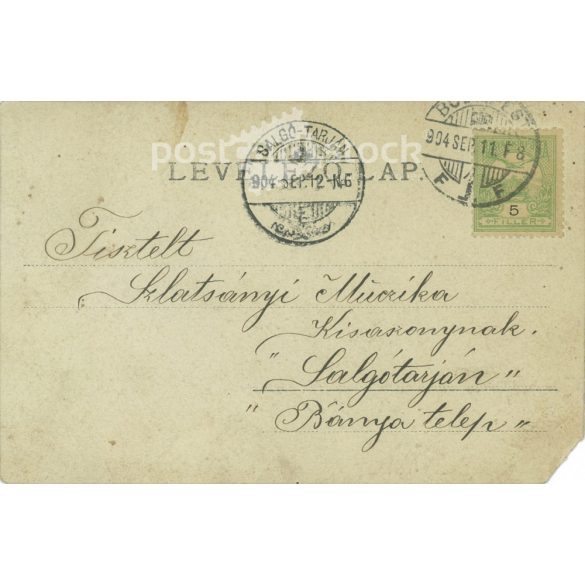 LEVELEZŐ-LAP.
SALGÓ-TARJÁN
904 SEP. 12 - N. 6
904 SEP. 11. F 8
5
FILLER
Tisztelt
Szlatsányi Muczika
Kisasszonynak.
"Salgótarján"
"Bánya telep"